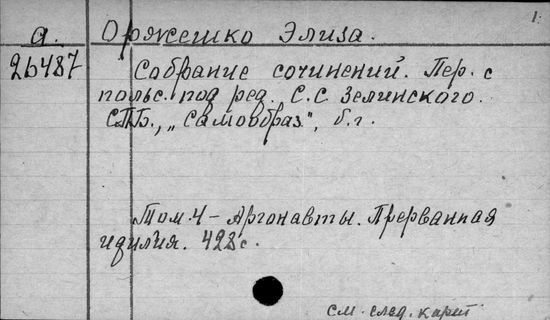 1.
а. Оржешко Элиза.
26487 Собрание сочинений. Пер. с
польс. под ред. С.С Зелинского.
СПБ., „Самообраз", б.г.
Том.4 - Аргонавты. Прерванная
идилия. 428с.
см. след. карт